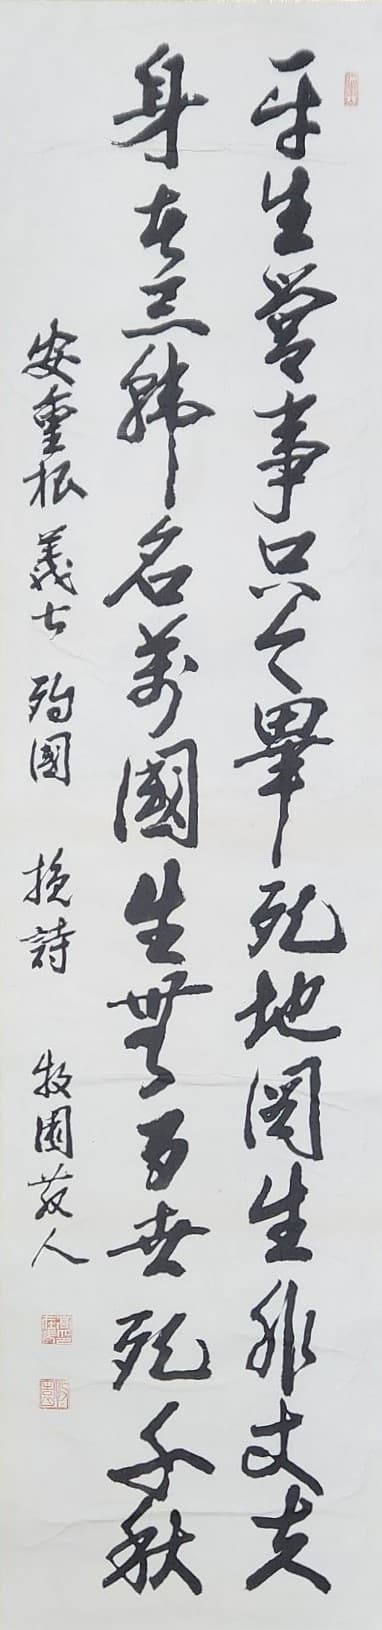 平生營事只今畢死地圖生非丈夫
身在三韓名萬國生無百世死千秋
安重根義士 殉國 挽詩 牧園散人